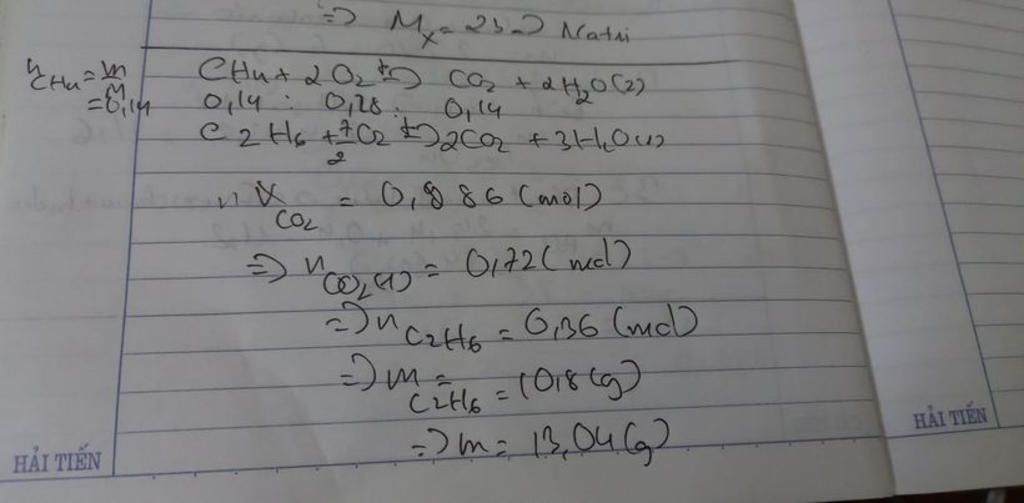 => Mx = 23 => Natri
nCH4 = m/M
= 0,14
CH4 + 2O2 t°-> CO2 + 2H2O (2)
0,14 : 0,28 : 0,14
C2H6 + 7/2 O2 t°-> 2CO2 + 3H2O (1)
n CO2 = 0,886 (mol)
=> n CO2 (1) = 0,72 (mol)
=> n C2H6 = 0,36 (mol)
=> m C2H6 = 10,8 (g)
=> m = 13,04 (g)
HẢI TIẾN
HẢI TIẾN